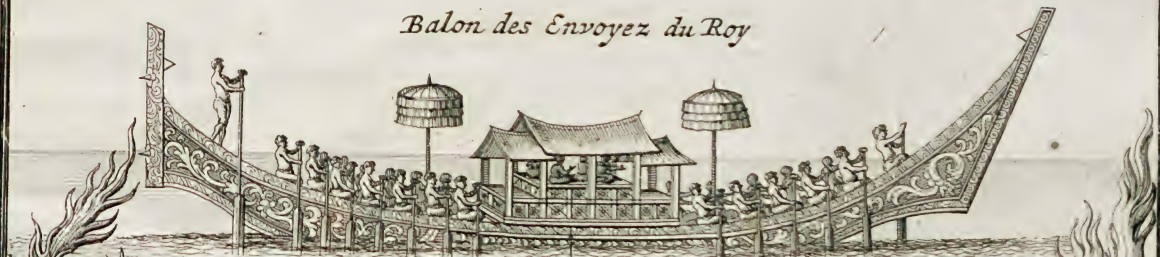 Balon des Envoyez du Roy